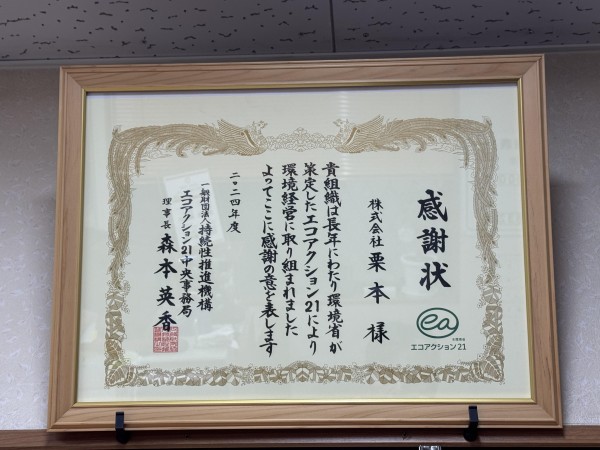 感謝状
株式会社 栗本 様
貴組織は長年にわたり環境省が
策定したエコアクション21により
環境経営に取り組まれました
よってここに感謝の意を表します
二〇二四年度
一般財団法人 持続性推進機構
エコアクション21中央事務局
理事長 森本英香
ea
エコアクション21